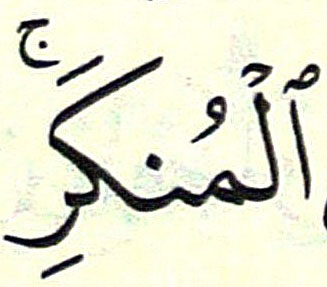 ٱلْمُنكَرِ ۚ